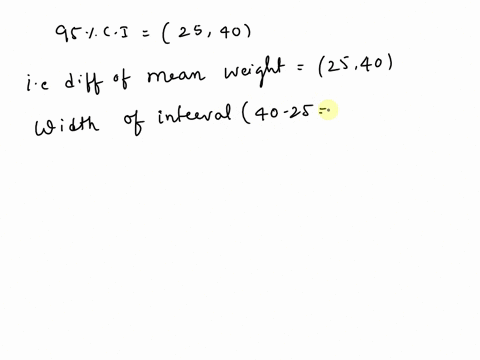 95 % C.I = ( 25, 40)
i.e diff of mean weight = (25,40)
Width of interval ( 40-25 =